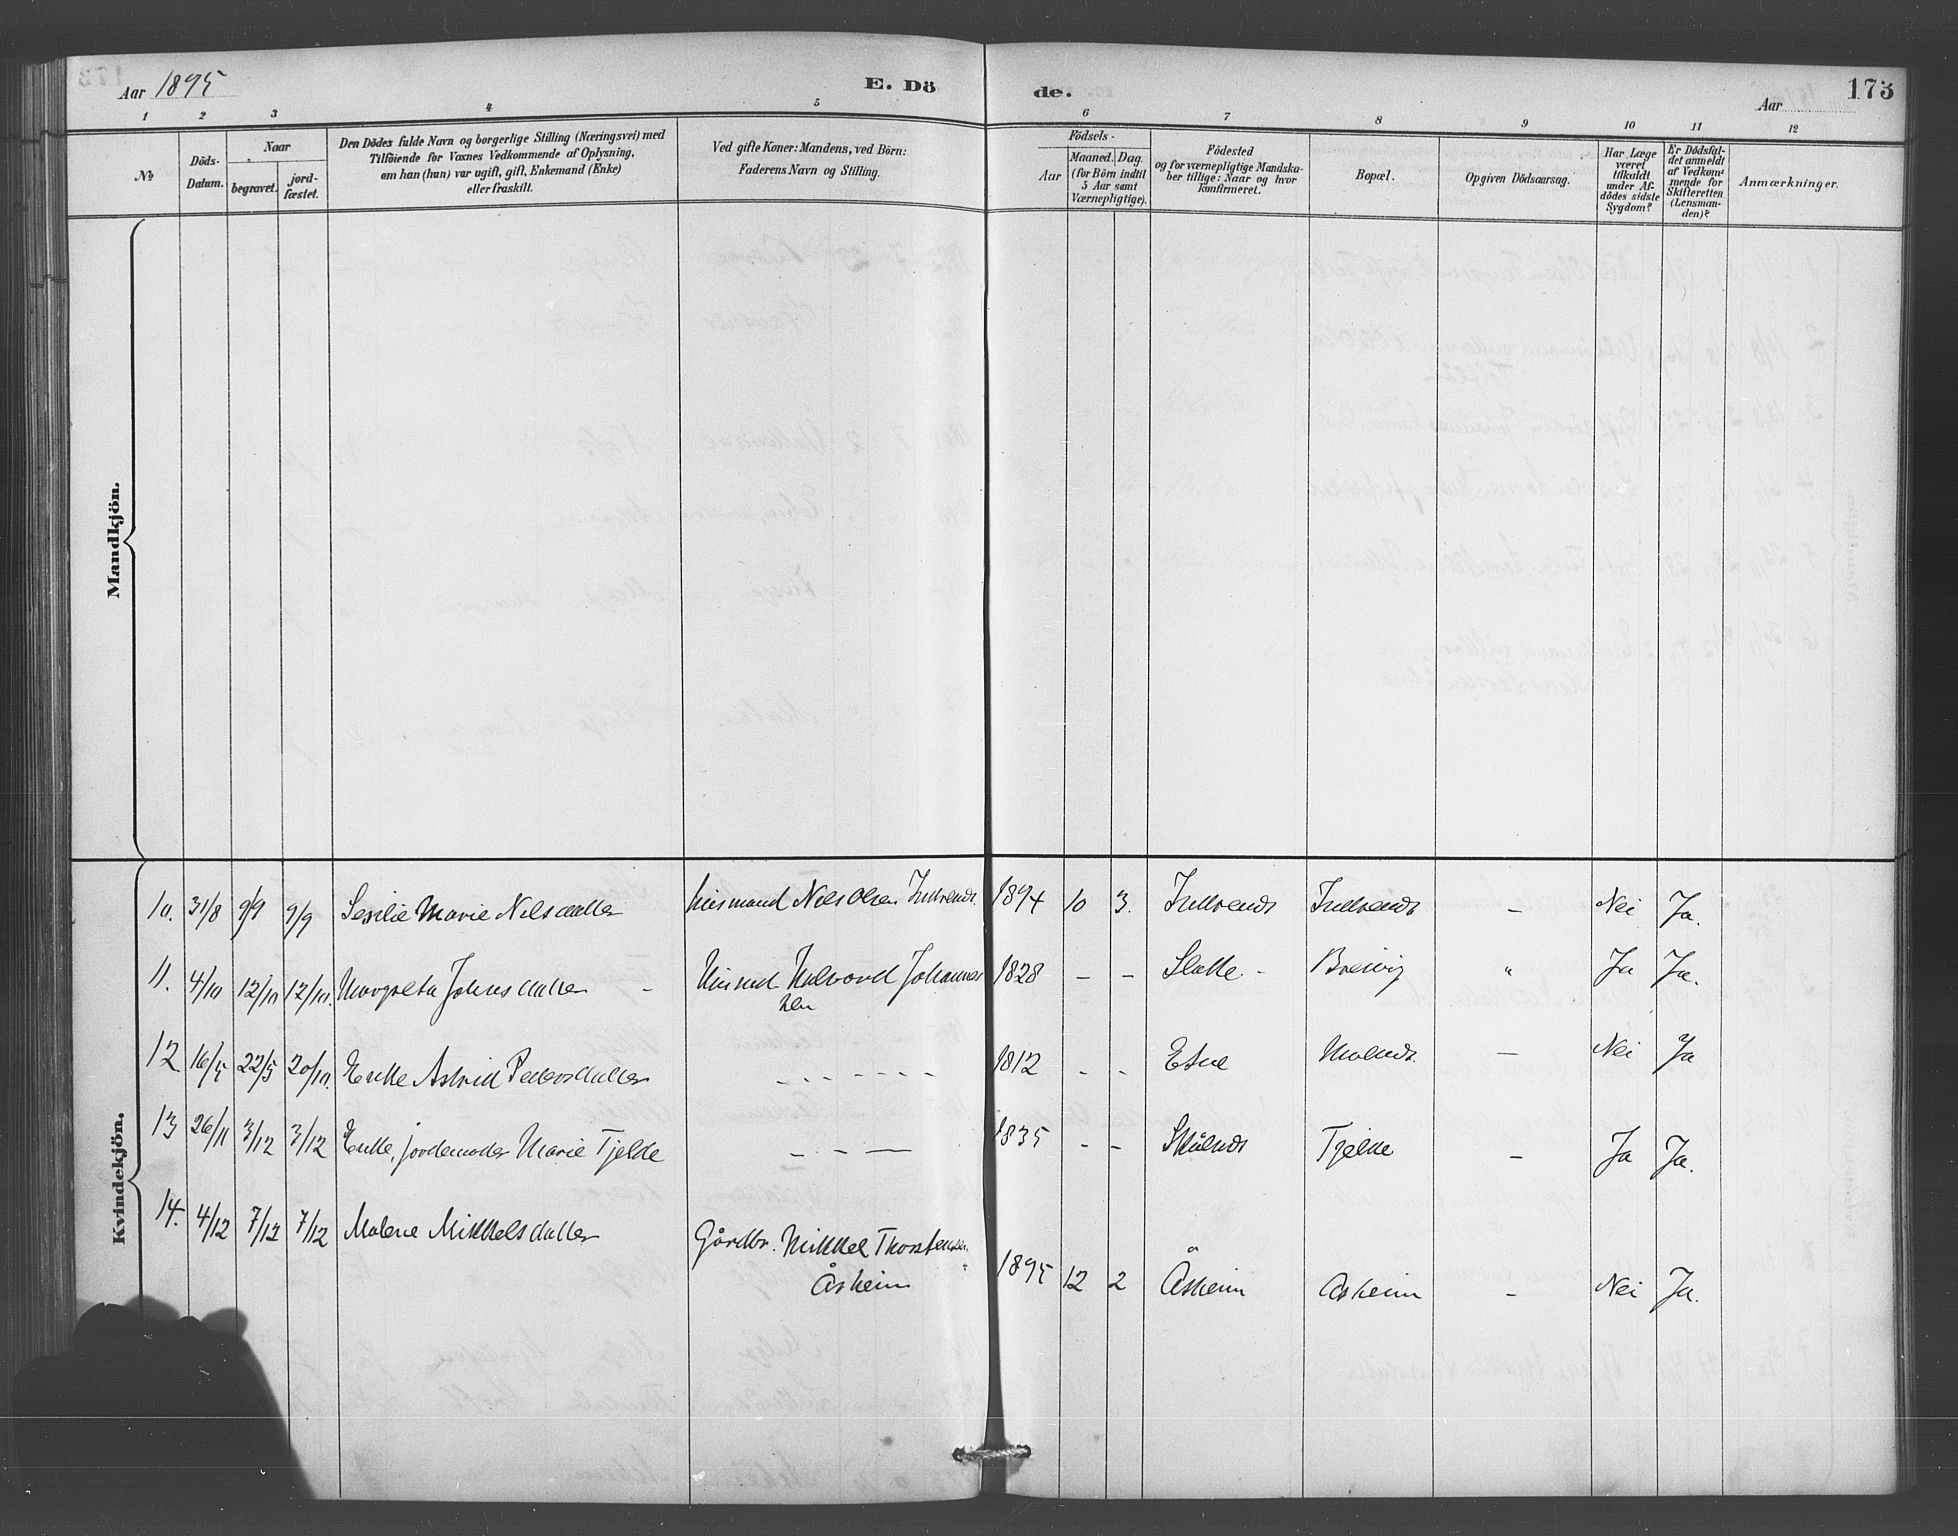 Aar 1895
E. Dö
de.
Aar
173
1 2 3 4 5 6 7 8 9 10 11 12
No
Döds-
Datum.
Naar
begravet.
jord-
fæstet.
Den Dödes fulde Navn og borgerlige Stilling (Næringsvei) med
Tilföiende for Voxnes Vedkommende af Oplysning,
om han (hun) var ugift, gift, Enkemand (Enke)
eller fraskilt.
Ved gifte Koner: Mandens, ved Börn:
Faderens Navn og Stilling.
Födsels-
Aar
Maaned. Dag.
(for Börn indtil
5 Aar samt
Værnepligtige).
Födested
og for værnepligtige Mandska-
ber tillige: Naar og hvor
konfirmeret.
Bopæl.
Opgiven Dödsaarsag.
Har Læge
været
tilkaldt
under Af-
dödes sidste
Sygdom?
Er Dödsfal-
det anmeldt
af Vedkom-
mende for
Skifteretten
(Lensman-
den)?
Anmærkninger.
Mandkjön.
Kvindekjön.
10. 31/8 9/9 9/9 Sesilie Marie Nilsdatter husmand Nils Olsen 1894 10 3. – Nei Ja.
11. 4/10 12/10 12/10. Margreta Johnsdatter – Husmd Halvord Johannes 1828 – – Slatte – Breivig " Ja Ja.
sen
12 16/5 22/5 20/10. Enke Astrid Pedersdatter – – – – – – 1812 – – Etne – Nei Ja
13 26/11 3/12 3/12 Enke, jordemoder Marie Tjelde – – — 1835 – – Skålnes Tjelde – Ja Ja.
14. 4/12 7/12 7/12 Malene Mikkelsdatter Gårdbr. Mikkel Thorstensen
Åsheim 1895 12 2 Åsheim Åsheim – Nei Ja.